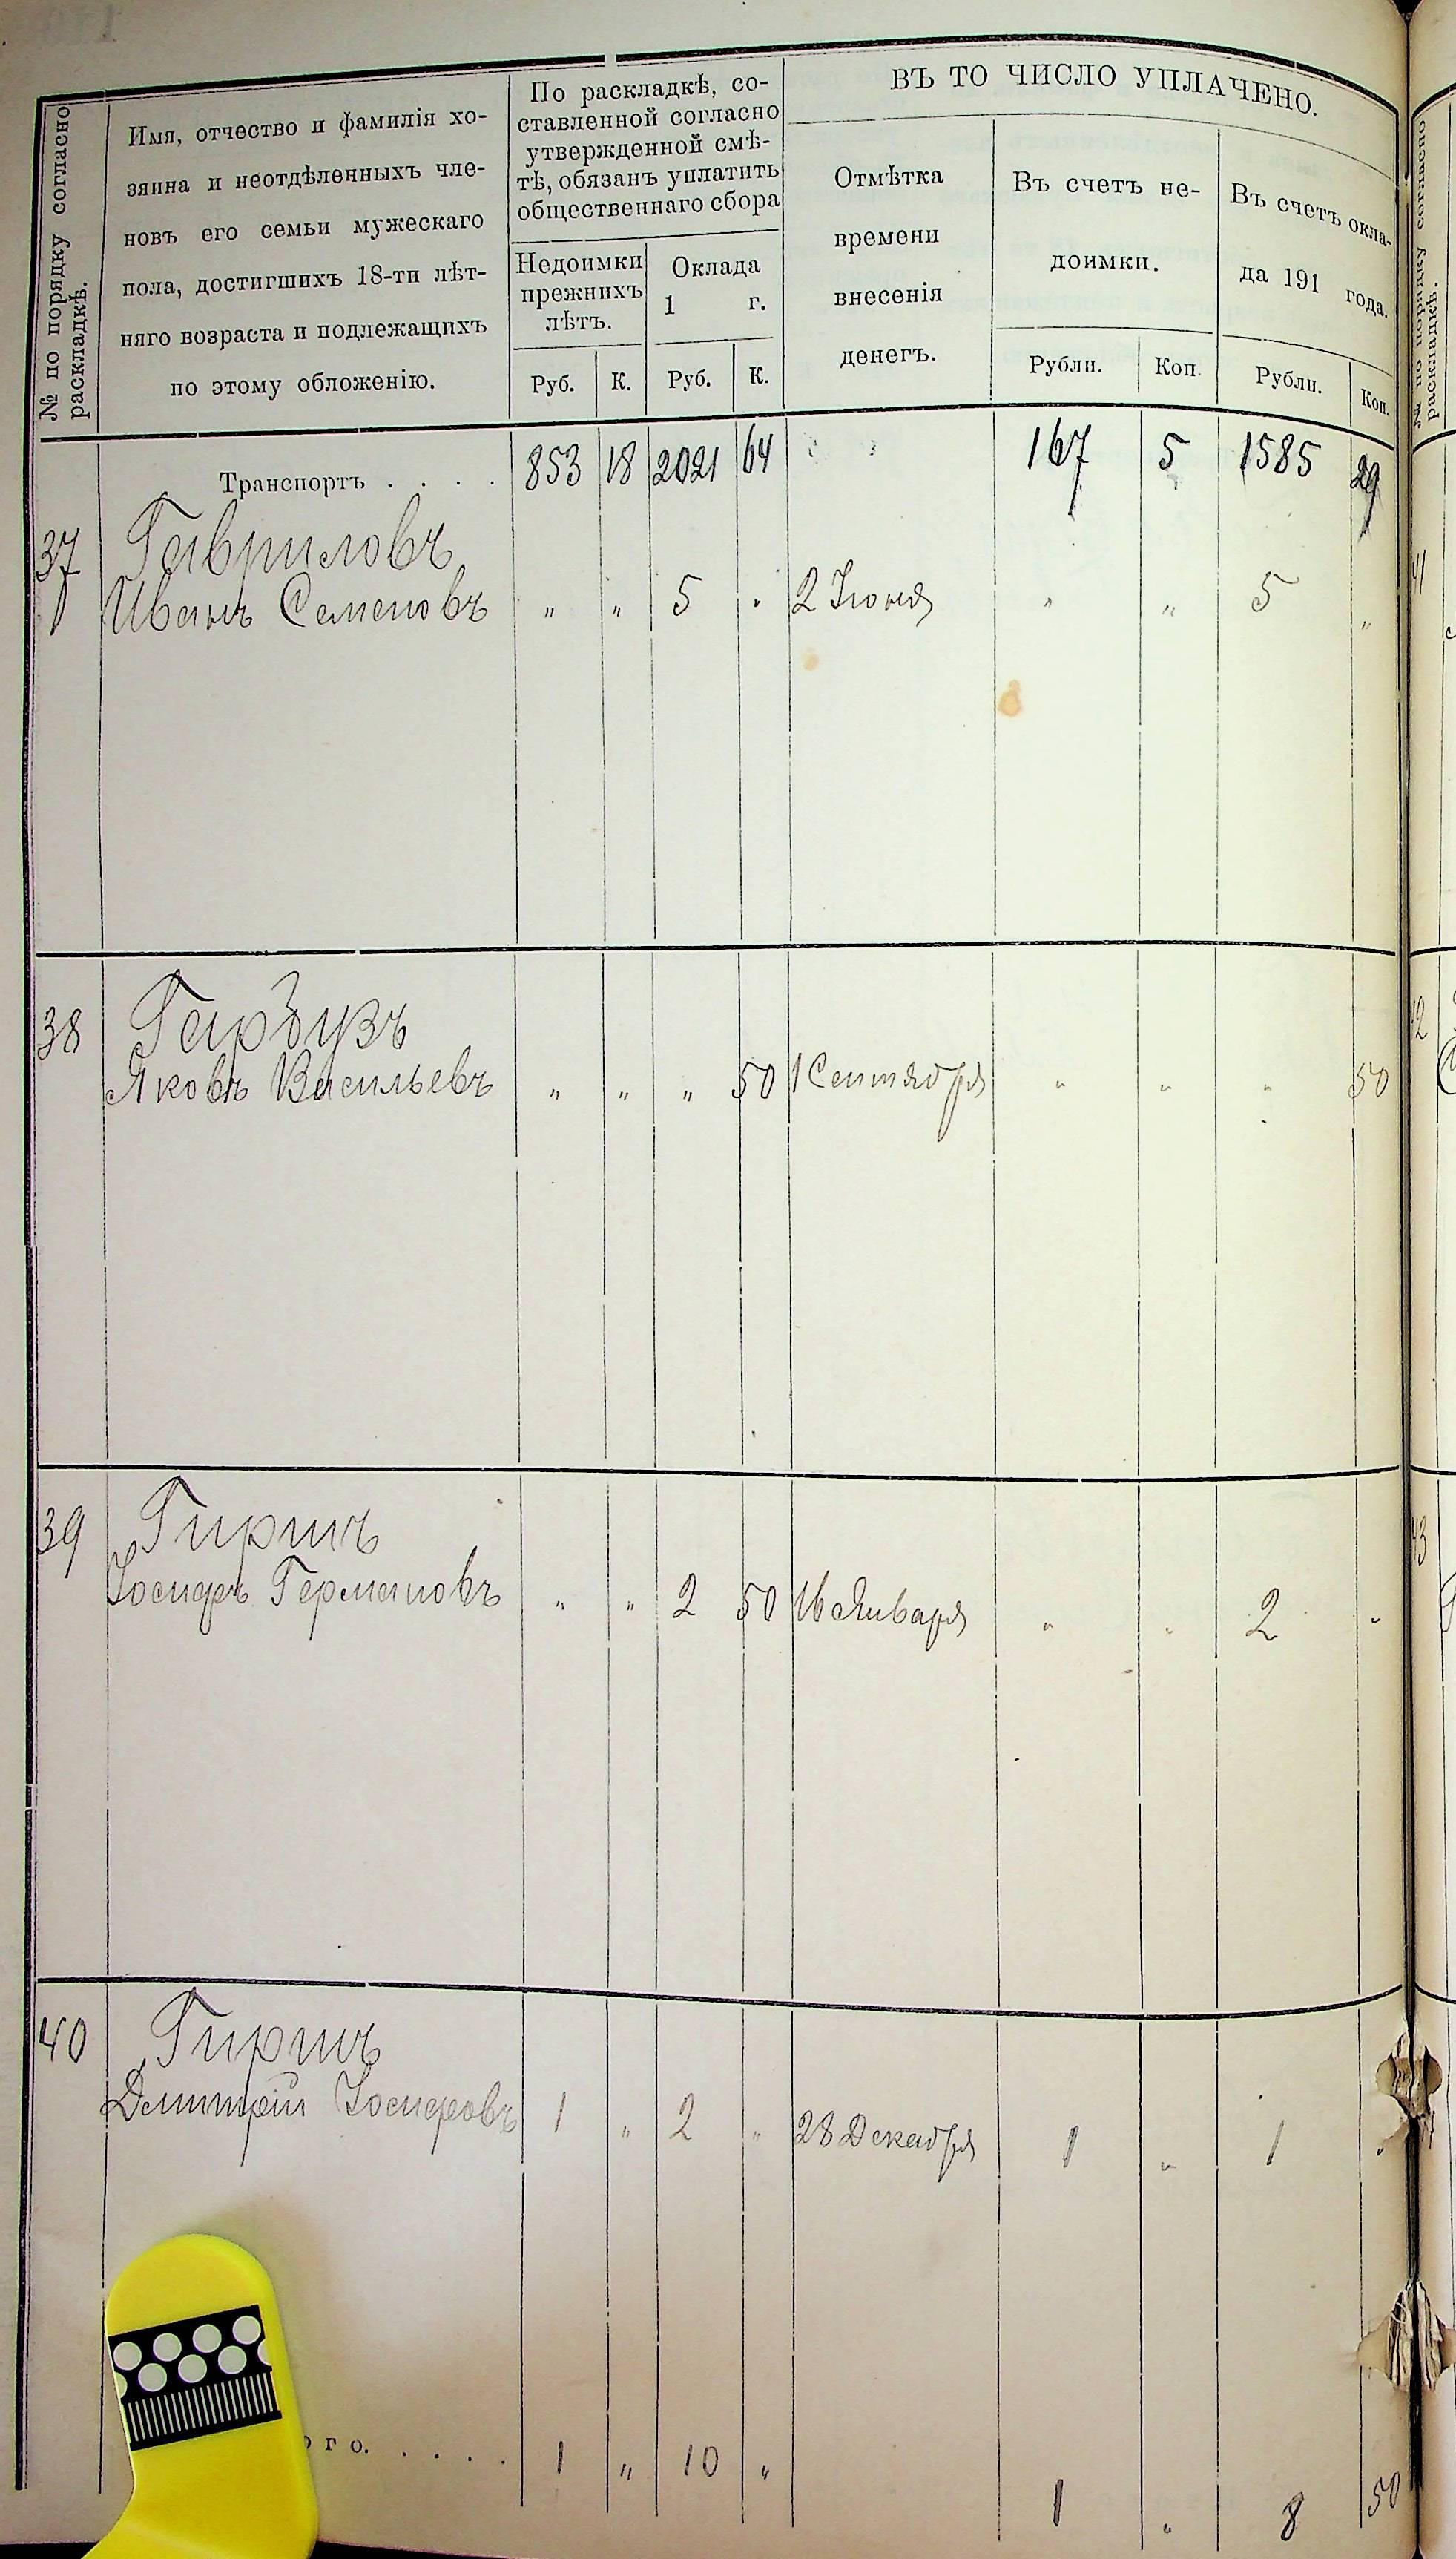 № по порядку согласно
раскладкѣ.
Имя, отчество и фамилія хо-
зяина и неотдѣленныхъ чле-
новъ его семьи мужескаго
пола, достигшихъ 18-ти лѣт-
няго возраста и подлежащихъ
по этому обложенію.
По раскладкѣ, со-
ставленной согласно
утвержденной смѣ-
тѣ, обязанъ уплатить
общественнаго сбора
Недоимки
прежнихъ
лѣтъ.
Оклада
1 г.
Руб. К. Руб. К.
ВЪ ТО ЧИСЛО УПЛАЧЕНО.
Отмѣтка
времени
внесенія
денегъ.
Въ счетъ не-
доимки.
Рубли. Коп.
Въ счетъ окла-
да 191 года.
Рубли. Коп.
Транспортъ . . . . 853 18 2021 64 167 5 1585 29
37 Гавриловъ
Иванъ Семеновъ „ „ 5 „ 2 Іюня „ „ 5 „
38 Гарбузъ
Яковъ Васильевъ „ „ „ 50 1 Сентября „ „ „ 50
39 Гиршъ
Іосифъ Германовъ „ „ 2 50 16 Января „ „ 2 „
40 Гиршъ
Дмитрій Іосифовъ 1 „ 2 „ 28 Декабря 1 „ 1 „
ого. . . . . 1 „ 10 „ 1 „ 8 50
№ по порядку согласно
раскладкѣ.